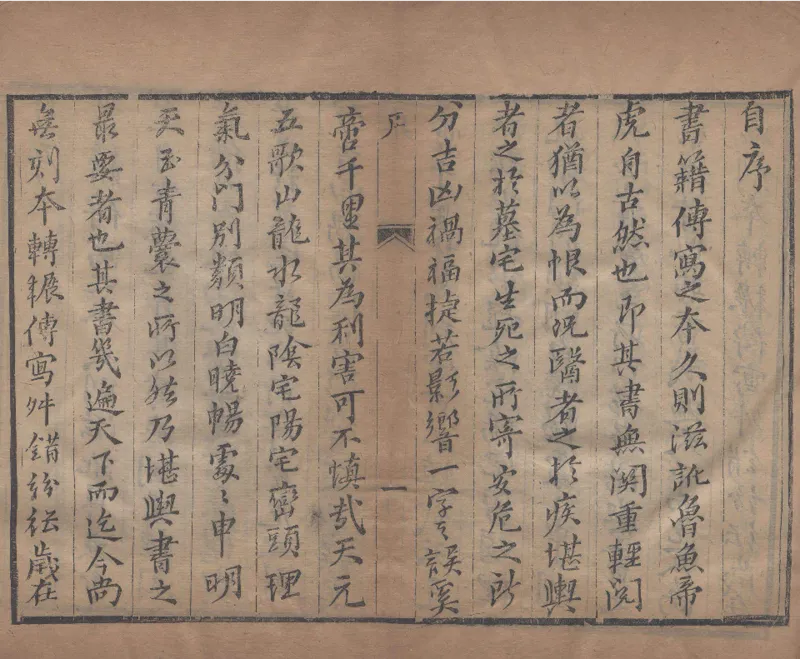 自序
書籍傳寫之本久則滋訛魯魚帝
虎自古然也即其書無関重輕閱
者猶以為恨而況醫者之於疾堪輿
者之於墓宅生死之所寄安危之所
分吉凶禍福捷若影響一字之誤奚
啻千里其為利害可不慎哉天元
五歌山龍水龍陰宅陽宅巒頭理
氣分門別類明白曉暢處〻申明
天玉青囊之所以然乃堪輿書之
最要者也其書幾遍天下而迄今尚
無刻本轉輾傳寫舛錯紛紜歲在
序
一